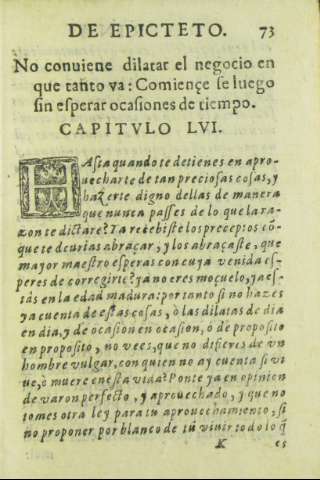 DE EPICTETO. 73
No conuiene dilatar el negocio en
que tanto va: Comiençe se luego
sin esperar ocasiones de tiempo.
CAPITVLO LVI.
HASta quando te detienes en apro-
uecharte de tan preciosas cosas, y
hazerte digno dellas de manera
que nunca passes de lo que la ra-
zon te dictare? Ta recebiste los preceptos cõ-
que te deurias abraçar, y los abraçaste, que
mayor maestro esperas con cuya venida es-
peres de corregirte? ya no eres moçuelo, ya es-
tàs en la edad madura: por tanto si no hazes
ya cuenta de estas cosas, ò las dilatas de dia
en dia, y de ocasion en ocasion, ó de proposito
en proposito, no vees, que no difieres de vn
hombre vulgar, con quien no ay cuenta si vi
ue, ò muere en esta vida? Ponte ya en opinion
de varon perfecto, y aprouechado, y que no
tomes otra ley para tu aprouechamiento, si
no proponer por blanco de tu viuir todo lo q̃
K es